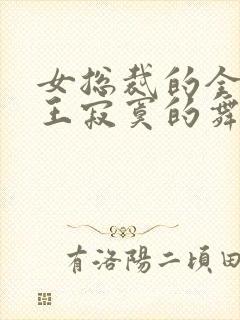 女总裁的全
王寂寞的舞
有洛陽二頃田